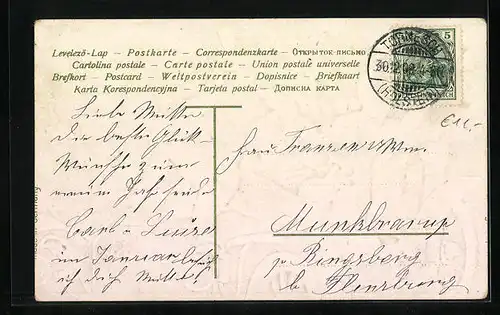 Levelező-Lap — Postkarte — Correspondenzkarte — Открытое письмо
Cartolina postale — Carte postale — Union postale universelle
Brefkort — Postcard — Weltpostverein — Dopisnice — Briefkaart
Karta Korespondencyjna — Tarjeta postal — Дописна карта
5
30.12.08
(HOLSTEIN)
€11,-
Liebe Mutter
Die besten Glück-
Wünsche zum
neuen Jahr sendet
Carl-Luise
im Januar
ich dich Mutter
Frau Franzen Wwe.
Munkbrarup
p. Ringsberg
b. Flensburg
Germany